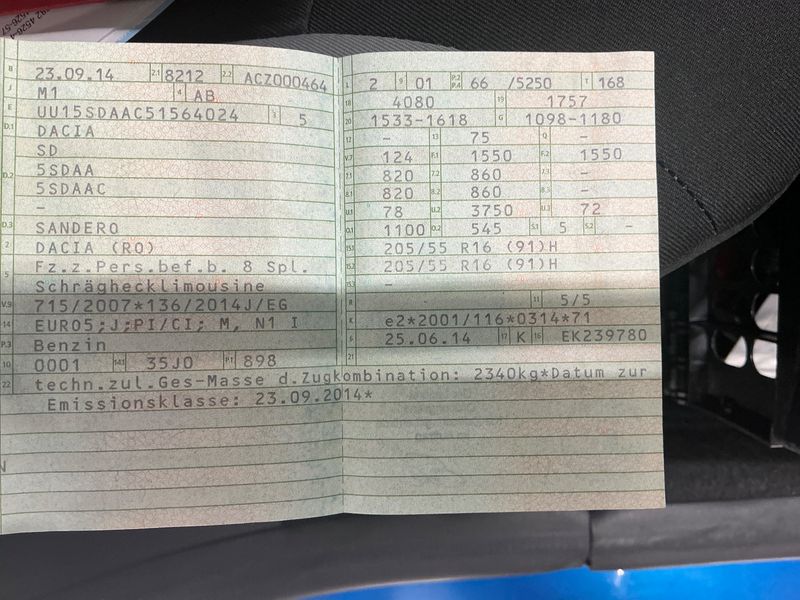 B 23.09.14 2.1 8212 2.2 ACZ000464
J M1 4 AB
E UU15SDAAC51564024 3 5
D.1 DACIA
SD
D.2 5SDAA
5SDAAC
-
D.3 SANDERO
2 DACIA (RO)
5 Fz.z.Pers.bef.b. 8 Spl.
Schräghecklimousine
V.9 715/2007*136/2014J/EG
14 EURO5;J;PI/CI; M, N1 I
P.3 Benzin
10 0001 14.1 35J0 P.1 898
22 techn.zul.Ges-Masse d.Zugkombination: 2340kg*Datum zur
Emissionsklasse: 23.09.2014*
L 2 9 01 P.2 P.4 66 /5250 T 168
18 4080 19 1757
20 1533-1618 G 1098-1180
12 - 13 75 Q -
V.7 124 F.1 1550 F.2 1550
7.1 820 7.2 860 7.3 -
8.1 820 8.2 860 8.3 -
U.1 78 U.2 3750 U.3 72
O.1 1100 O.2 545 S.1 5 S.2 -
15.1 205/55 R16 (91)H
15.2 205/55 R16 (91)H
15.3 -
R - 11 5/5
K e2*2001/116*0314*71
6 25.06.14 17 K 16 EK239780
21